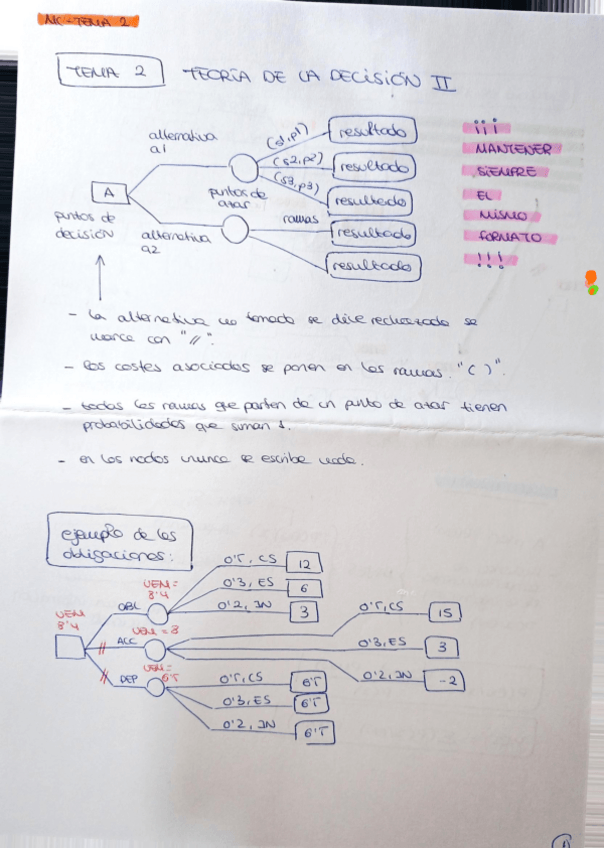 MC-TEMA 2
TEMA 2 TEORÍA DE LA DECISIÓN II
alternativa
a1
(s1,p1)
(s2,p2)
(s3,p3)
resultado
resultado
resultado
resultado
resultado
A
puntos de
decisión
puntos de
azar
ramas
alternativa
a2
¡¡¡
MANTENER
SIEMPRE
EL
MISMO
FORMATO
!!!
- la alternativa no tomada se dice rechazada se
marca con "//".
- los costes asociados se ponen en las ramas "( )".
- todas las ramas que parten de un punto de azar tienen
probabilidades que suman 1.
- en los nodos nunca se escribe nada.
ejemplo de las
obligaciones:
VEM
8'4
OBL
VEM=
8'4
0'5, CS 12
0'3, ES 6
0'2, IN 3
ACC
VEM = 8
0'5, CS 15
0'3, ES 3
0'2, IN -2
DEP
VEM=
6'5
0'5, CS 6'5
0'3, ES 6'5
0'2, IN 6'5